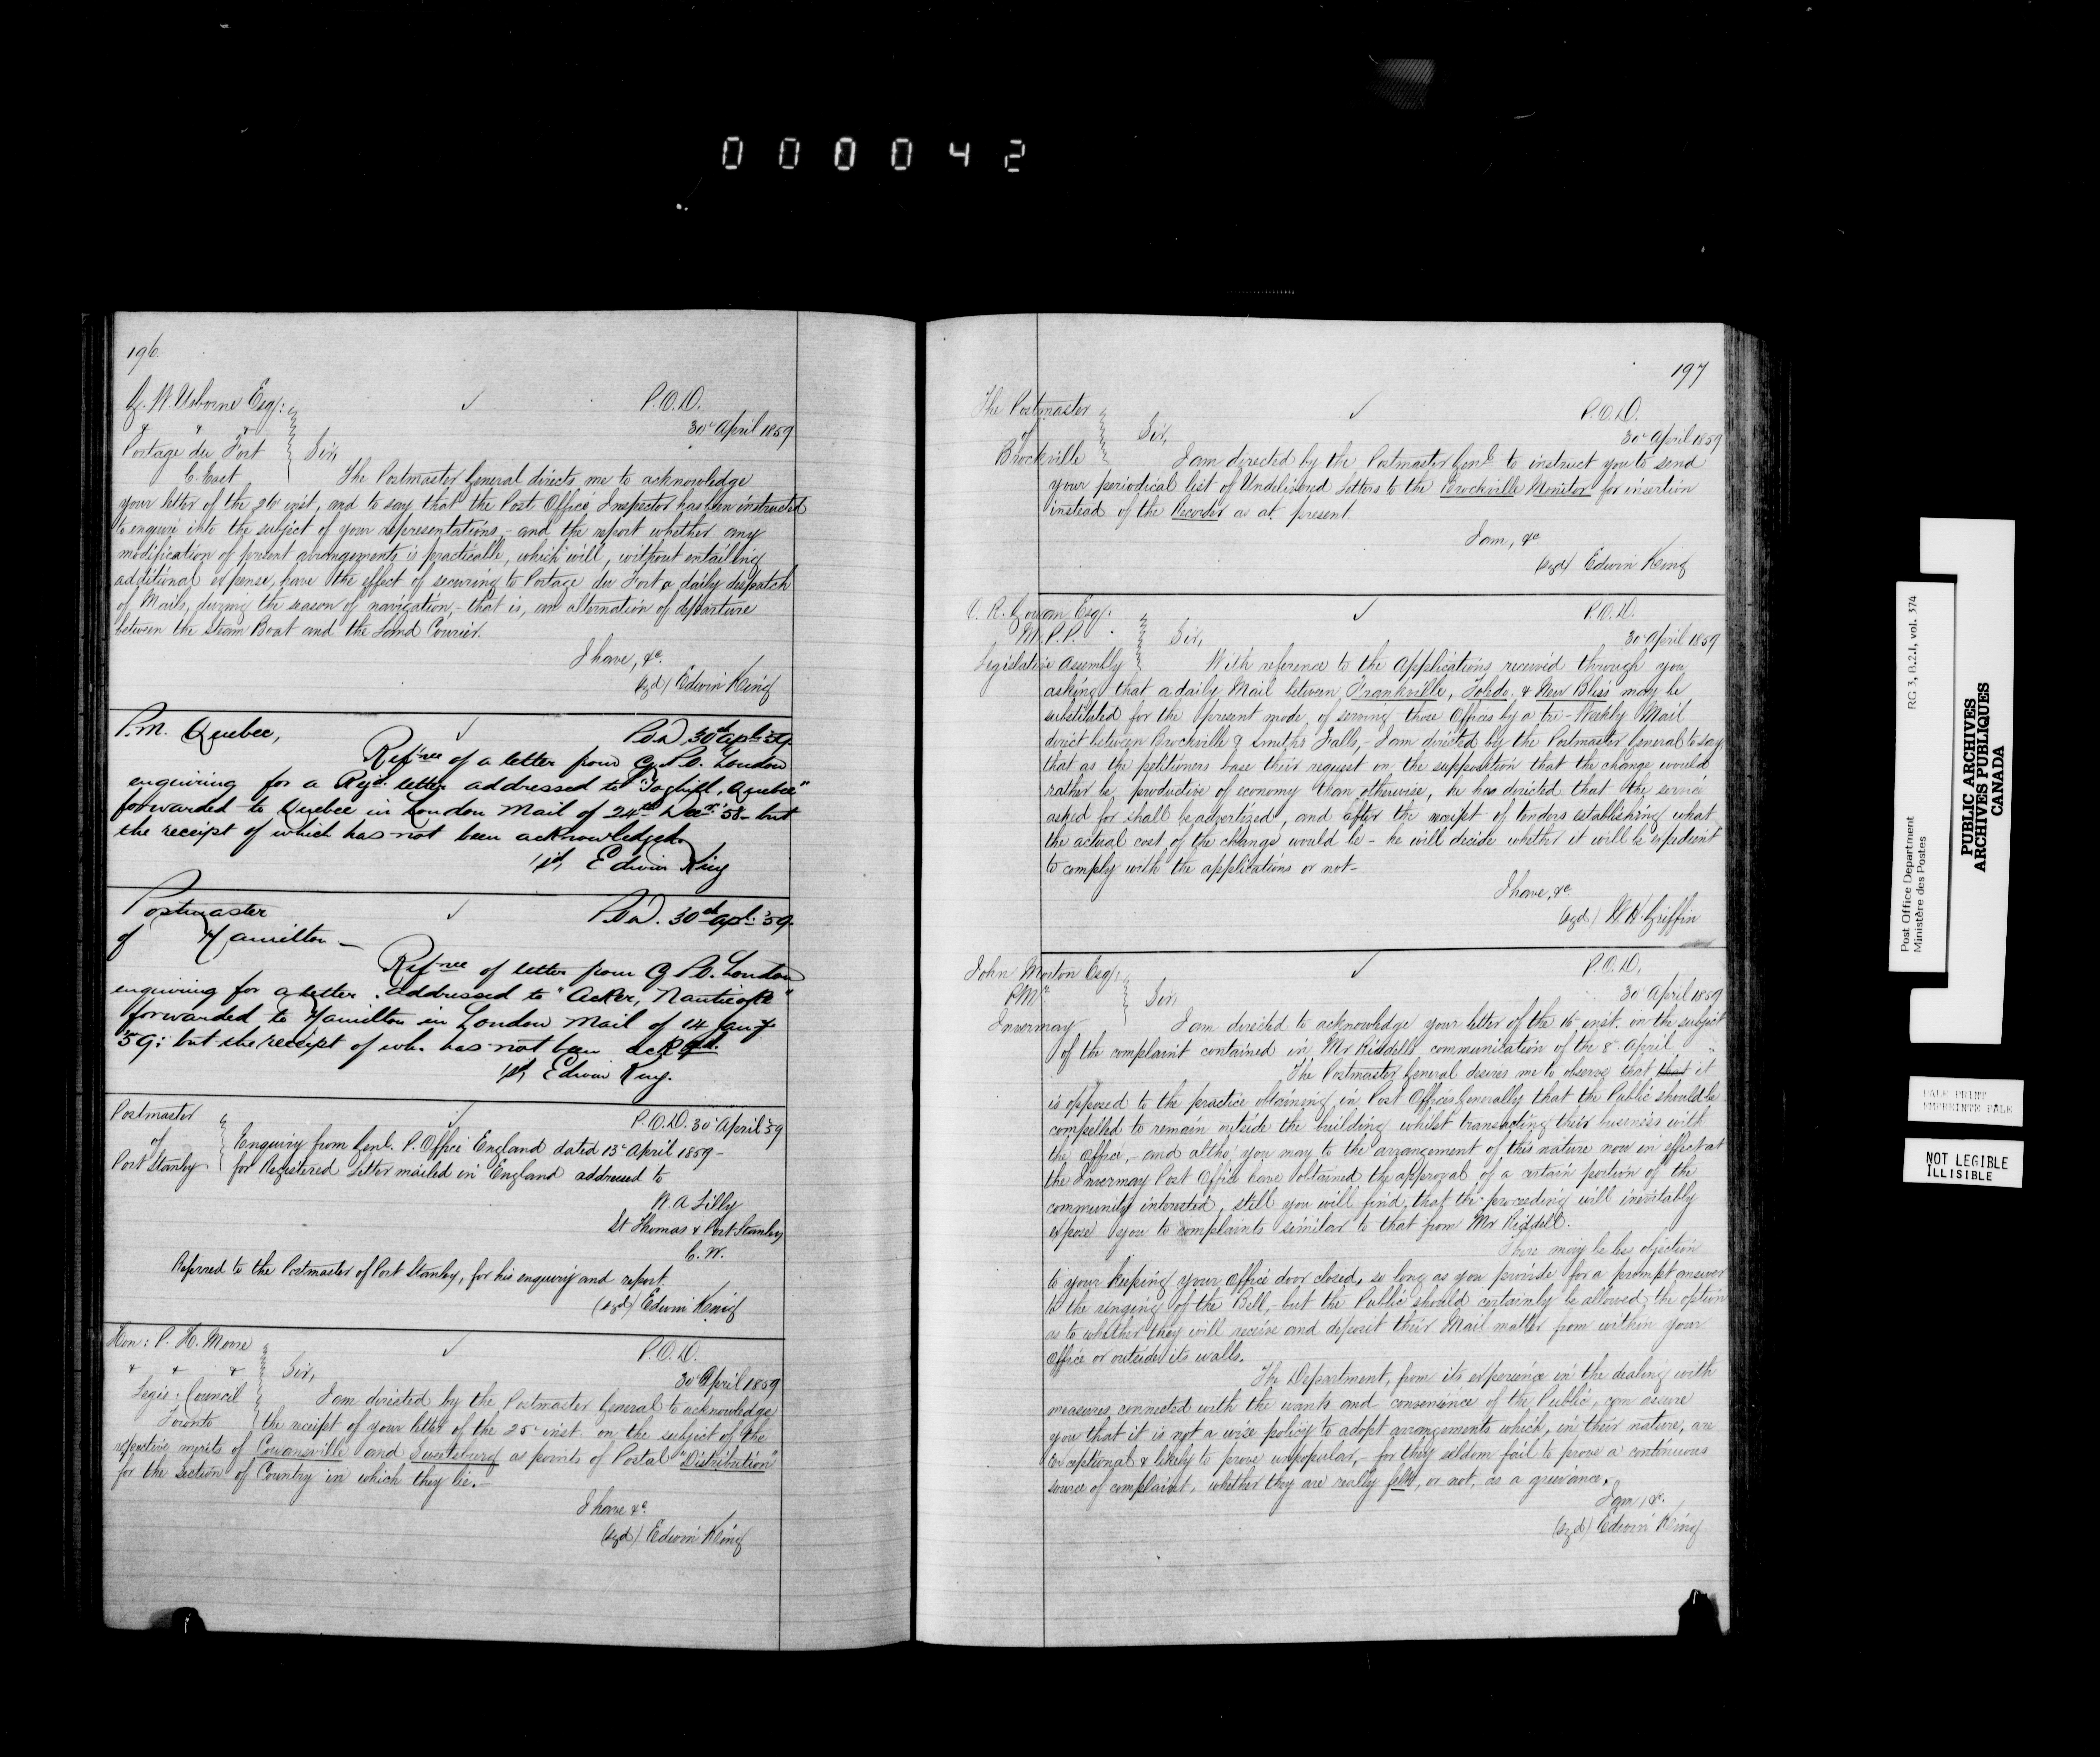 000042
196
G. W. Usborne Esqr: P.O.D.
" " " 30th April 1859
Portage du Fort Sir,
C. East The Postmaster General directs me to acknowledge
your letter of the 26th inst, and to say that the Post Office Inspector has been instructed
to enquire into the subject of your representations,- and the report whether any
modification of present arrangements is practicable, which will, without entailing
additional expense, have the effect of securing to Portage du Fort a daily despatch
of Mails, during the season of navigation,- that is, an alternation of departure
between the Steam Boat and the Land Courier.
I have, &c.
(sgd) Edwin King
P.M. Quebec, P.O.D. 30th Apl: 59.
Refnce of a letter from G.P.O. London
enquiring for a Regd. letter addressed to " , Quebec"
forwarded to Quebec in London Mail of 24th Decr: '58 - but
the receipt of which has not been acknowledged.
Edwin King
Postmaster P.O.D. 30th Apl: '59.
of Hamilton -
Refnce of letter from G.P.O. London
enquiring for a letter addressed to "Acker, Nanticoke"
forwarded to Hamilton in London Mail of 14 Jany
'59: but the receipt of wh. has not been ackd.
Edwin King.
Postmaster P.O.D. 30th April '59
of Enquiry from Genl. P. Office England dated 13th April 1859 -
Port Stanley for Registered Letter mailed in England addressed to
W. A Lilly
St Thomas & Port Stanley
C. W.
Referred to the Postmaster of Port Stanley, for his enquiry and report.
(sgd) Edwin King
Hon: P. H. Moore P.O.D.
& & & Sir, 30th April 1859
Legis: Council I am directed by the Postmaster General to acknowledge
Toronto the receipt of your letter of the 25th inst. on the subject of the
respective merits of Cowansville and Sweetsburg as points of Postal "Distribution"
for the Section of Country in which they lie.-
I have &c
(sgd) Edwin King
197
The Postmaster P.O.D.
of Sir, 30th April 1859
Brockville I am directed by the Postmaster Genl. to instruct you to send
your periodical list of Undelivered Letters to the Brockville Monitor for insertion
instead of the Recorder as at present.
I am, &c
(sgd) Edwin King
O. R. Gowan Esqr. P.O.D.
M.P.P. Sir, 30th April 1859
Legislative Assembly With reference to the Applications received through you,
asking that a daily Mail between Frankville, Toledo, & New Bliss may be
substituted for the present mode, of serving those Offices by a tri-Weekly Mail
direct between Brockville & Smiths Falls,- I am directed by the Postmaster General to say,
that as the petitioners base their request on the supposition that the change would
rather be productive of economy than otherwise, he has directed that the service
asked for shall be advertized, and after the receipt of tenders establishing what
the actual cost of the change would be - he will decide whether it will be expedient
to comply with the applications or not-
I have, &c
(sgd) W. H. Griffin
John Morton Esqr. P.O.D.
P.Mr. Sir, 30th April 1859
Invermay I am directed to acknowledge your letter of the 16 inst. on the subject
of the complaint contained in Mr Riddell's communication of the 8th April
The Postmaster General desires me to observe that that it
is opposed to the practice obtaining in Post Offices Generally that the Public should be
compelled to remain outside the building whilst transacting their business with
the office,- and altho' you may to the arrangement of this nature now in effect at
the Invermay Post Office have obtained the approval of a certain portion of the
community interested, still you will find, that the proceeding will inevitably
expose you to complaints similar to that from Mr Riddell.
There may be no objection
to your keeping your office door closed, so long as you provide for a prompt answer
to the ringing of the Bell,- but the Public should certainly be allowed, the option
as to whether they will receive and deposit their Mail matter from within your
Office or outside its walls.
The Department, from its experience in the dealing with
measures connected with the wants and convenience of the Public, can assure
you that it is not a wise policy to adopt arrangements which, in their nature, are
exceptional & likely to prove unpopular,- for they seldom fail to prove a continuous
source of complaint, whether they are really felt, or not, as a grievance.
I am, &c.
(sgd) Edwin King
Post Office Department RG 3, B.2.1, vol. 374
Ministère des Postes
PUBLIC ARCHIVES
ARCHIVES PUBLIQUES
CANADA
PALE PRINT
EMPREINTE PALE
NOT LEGIBLE
ILLISIBLE